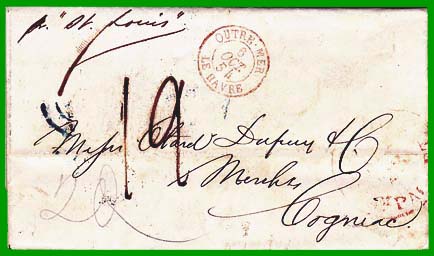 pr "St. Louis"
OUTRE-MER
6
OCT
54
LE HAVRE
19
Messrs Otard Dupuy & Co.
Merchts
Cognac